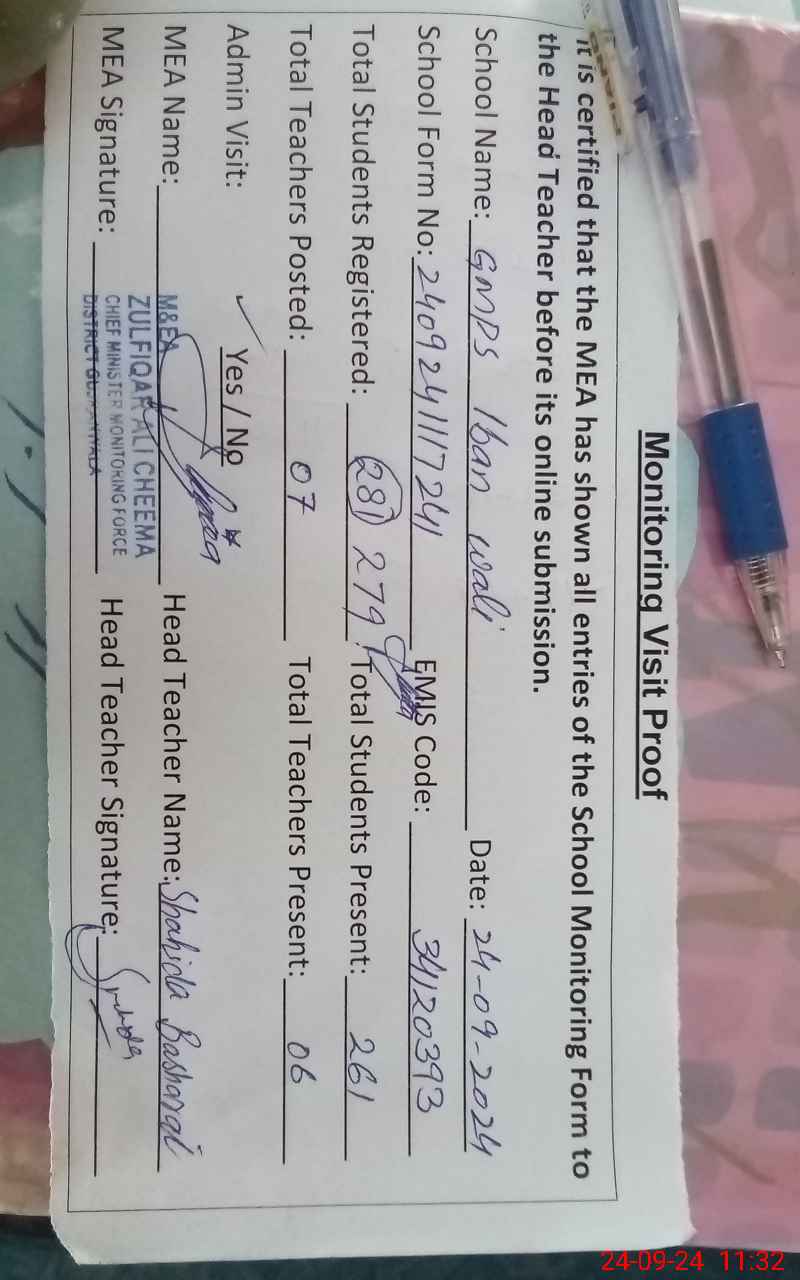 Monitoring Visit Proof
It is certified that the MEA has shown all entries of the School Monitoring Form to
the Head Teacher before its online submission.
School Name: GMPS Iban wali Date: 24-09-2024
School Form No: 2409241117241 EMIS Code: 34120393
Total Students Registered: (281) 279 Total Students Present: 261
Total Teachers Posted: 07 Total Teachers Present: 06
Admin Visit: ✓ Yes / No
MEA Name: Head Teacher Name: Shahida Basharat
MEA Signature: Head Teacher Signature:
M&EA
ZULFIQAR ALI CHEEMA
CHIEF MINISTER MONITORING FORCE
DISTRICT
24-09-24 11:32